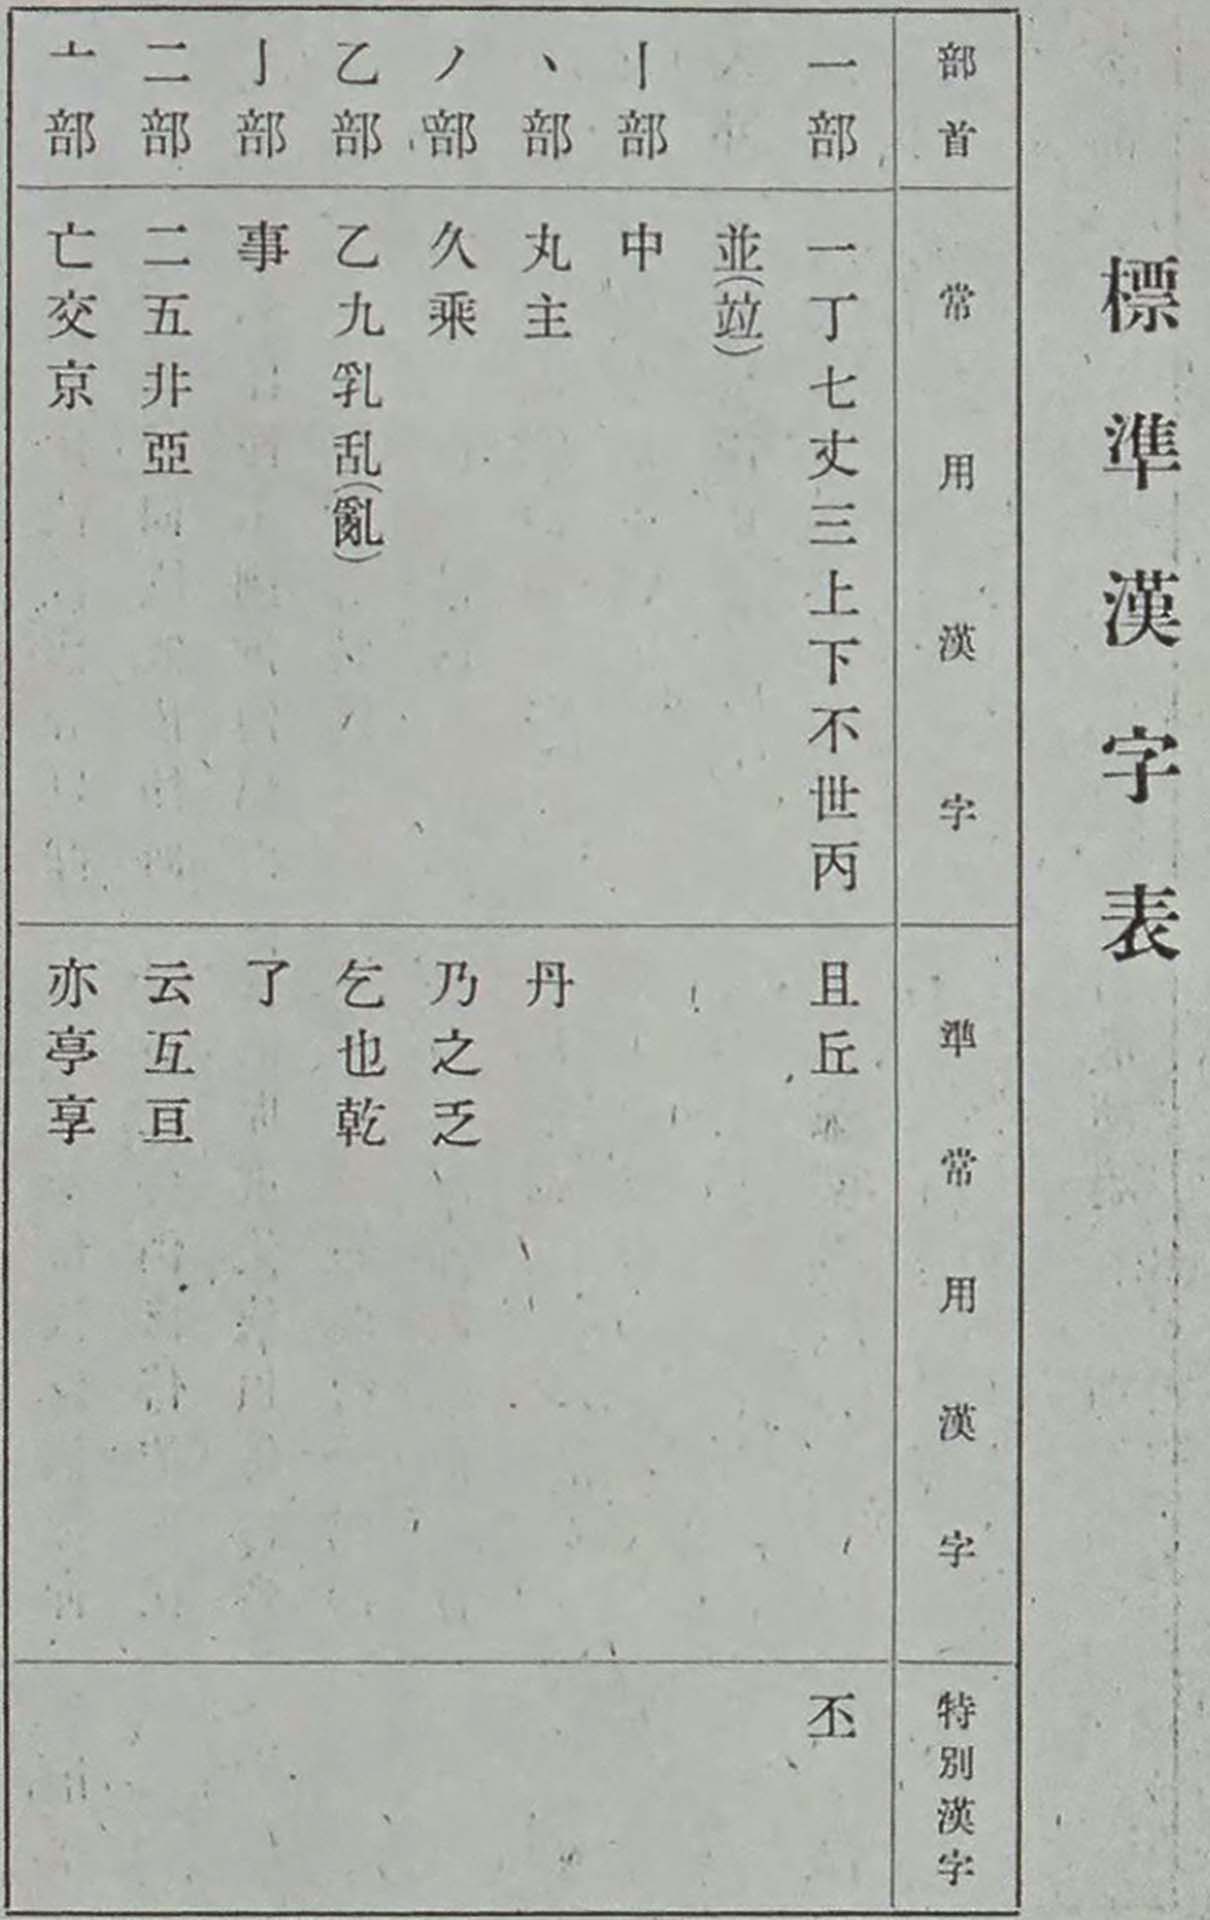 標準漢字表
部首 常用漢字 準常用漢字 特別漢字
一部 一丁七丈三上下不世丙 且丘 丕
並(竝)
丨部 中
丶部 丸主 丹
丿部 久乘 乃之乏
乙部 乙九乳乱(亂) 乞也乾
亅部 事 了
二部 二五井亞 云互亘
亠部 亡交京 亦亭享